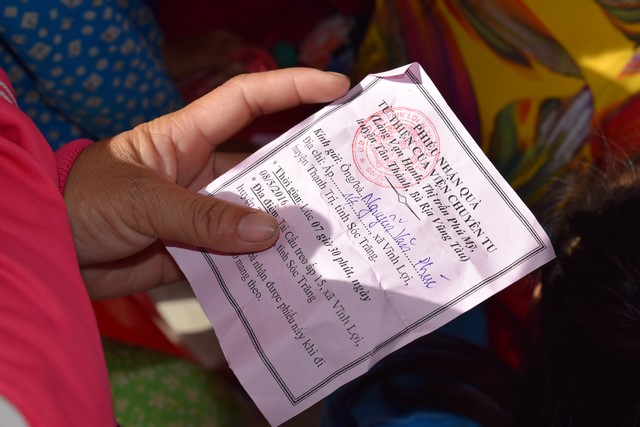 PHIẾU NHẬN QUÀ
TỪ THIỆN CỦA ĐAN VIỆN CHUYÊN TU
(Làng Vạn Hạnh, Thị trấn Phú Mỹ,
huyện Tân Thành, Bà Rịa Vũng Tàu)
Kính gửi: Ông/bà Nguyễn Văn Phúc
Địa chỉ: Ấp 14, xã Vĩnh Lợi,
huyện Thạnh Trị, tỉnh Sóc Trăng.
* Thời gian: Lúc 07 giờ 30 phút, ngày
08/5/2016
* Địa điểm: Tại Cầu treo ấp 15, xã Vĩnh Lợi,
tỉnh Sóc Trăng
nhận được phiếu này khi đi
mang theo.